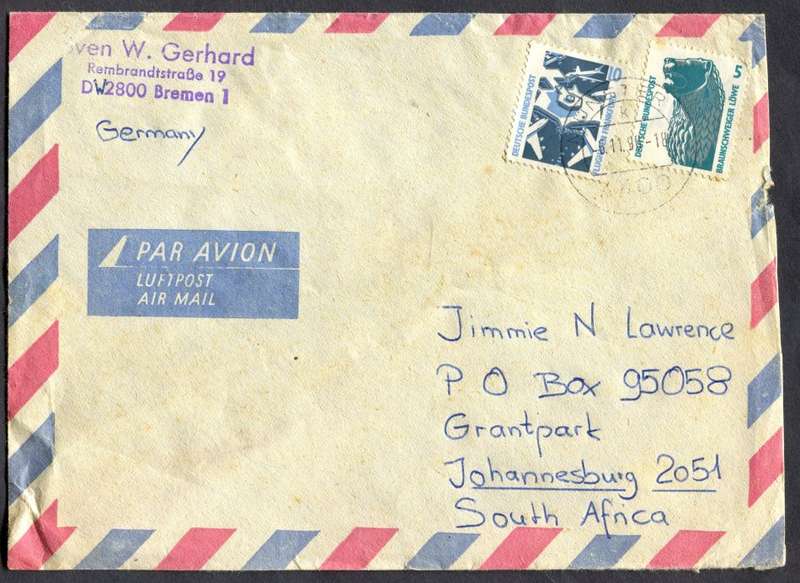 W. Gerhard
Rembrandtstraße 19
DW2800 Bremen 1
Germany
DEUTSCHE BUNDESPOST
10
FLUGHAFEN FRANKFURT
5
DEUTSCHE BUNDESPOST
BRAUNSCHWEIGER LÖWE
PAR AVION
LUFTPOST
AIR MAIL
Jimmie N Lawrence
P O Box 95058
Grantpark
Johannesburg 2051
South Africa